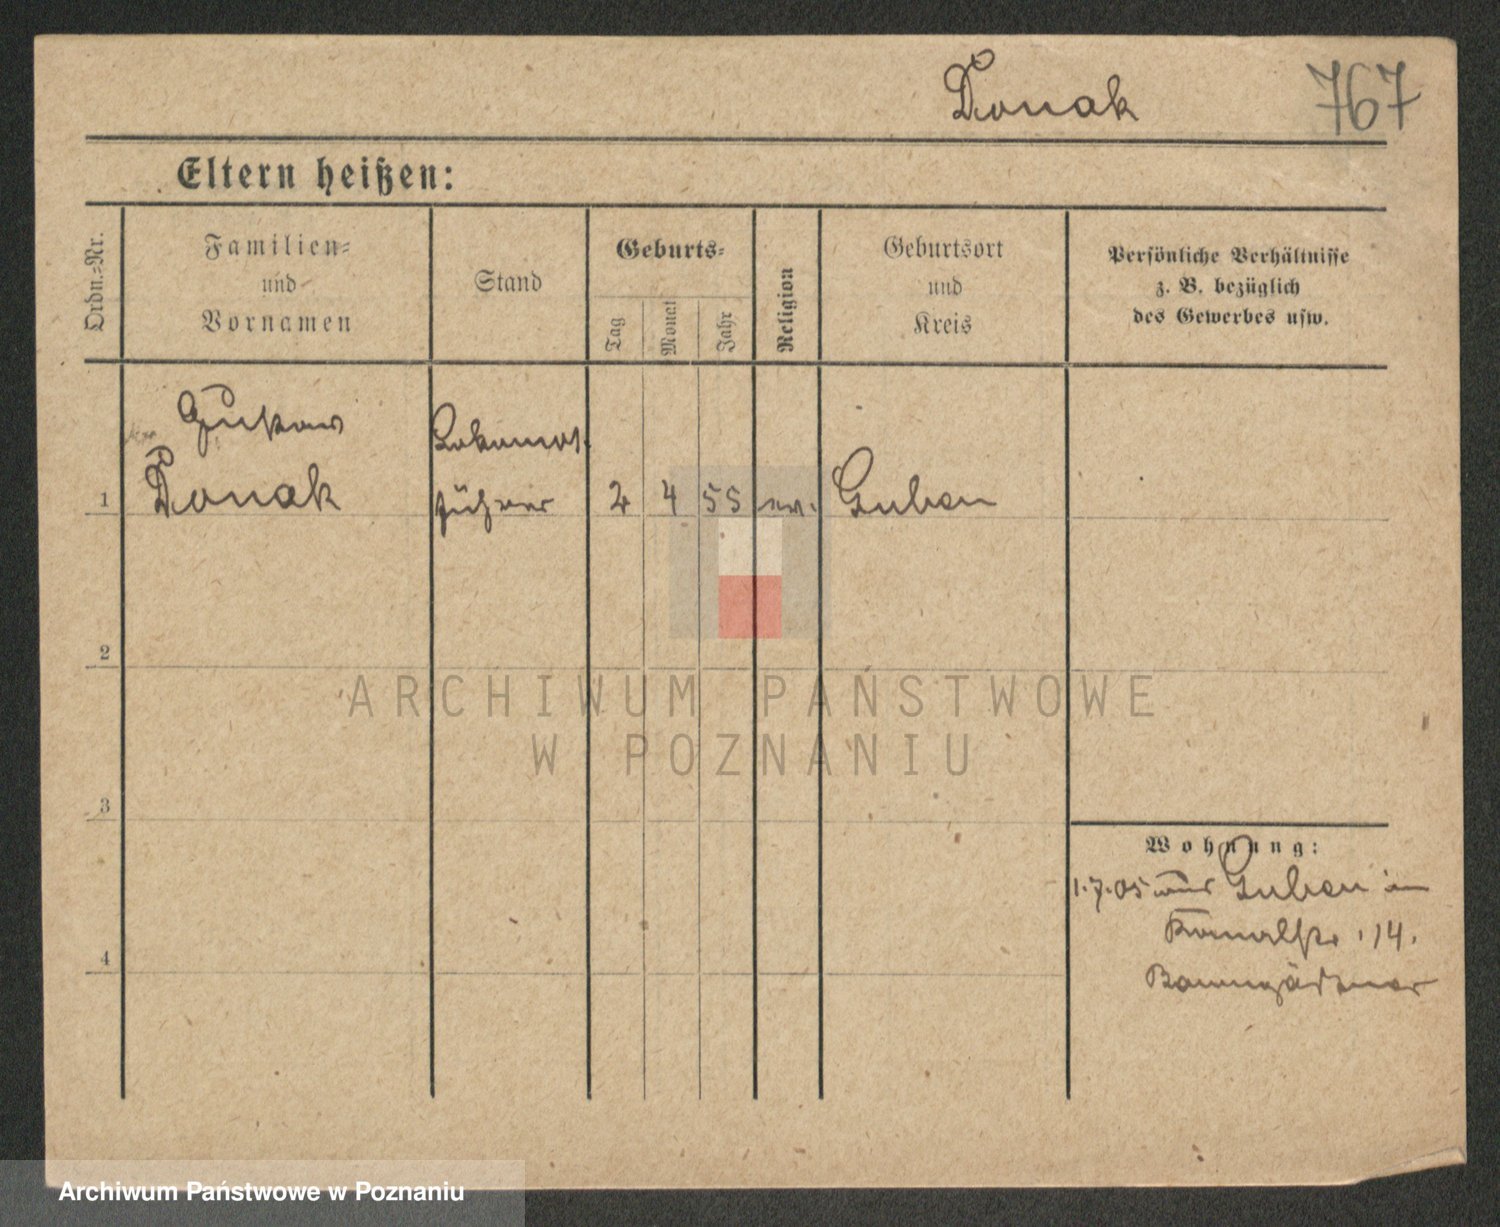 Donak 767
Eltern heißen:
Ordn.-Nr.
Familien-
und
Vornamen
Stand
Geburts-
Tag
Monat
Jahr
Religion
Geburtsort
und
Kreis
Persönliche Verhältnisse
z. B. bezüglich
des Gewerbes usw.
Gustav Lokomot.
1 Donak führer 2 4 55 ev. Guben
2
ARCHIWUM PAŃSTWOWE
W POZNANIU
3
Wohnung:
1.7.05 aus Guben in
Kanalstr. 14.
Baumgärtner
4
Archiwum Państwowe w Poznaniu